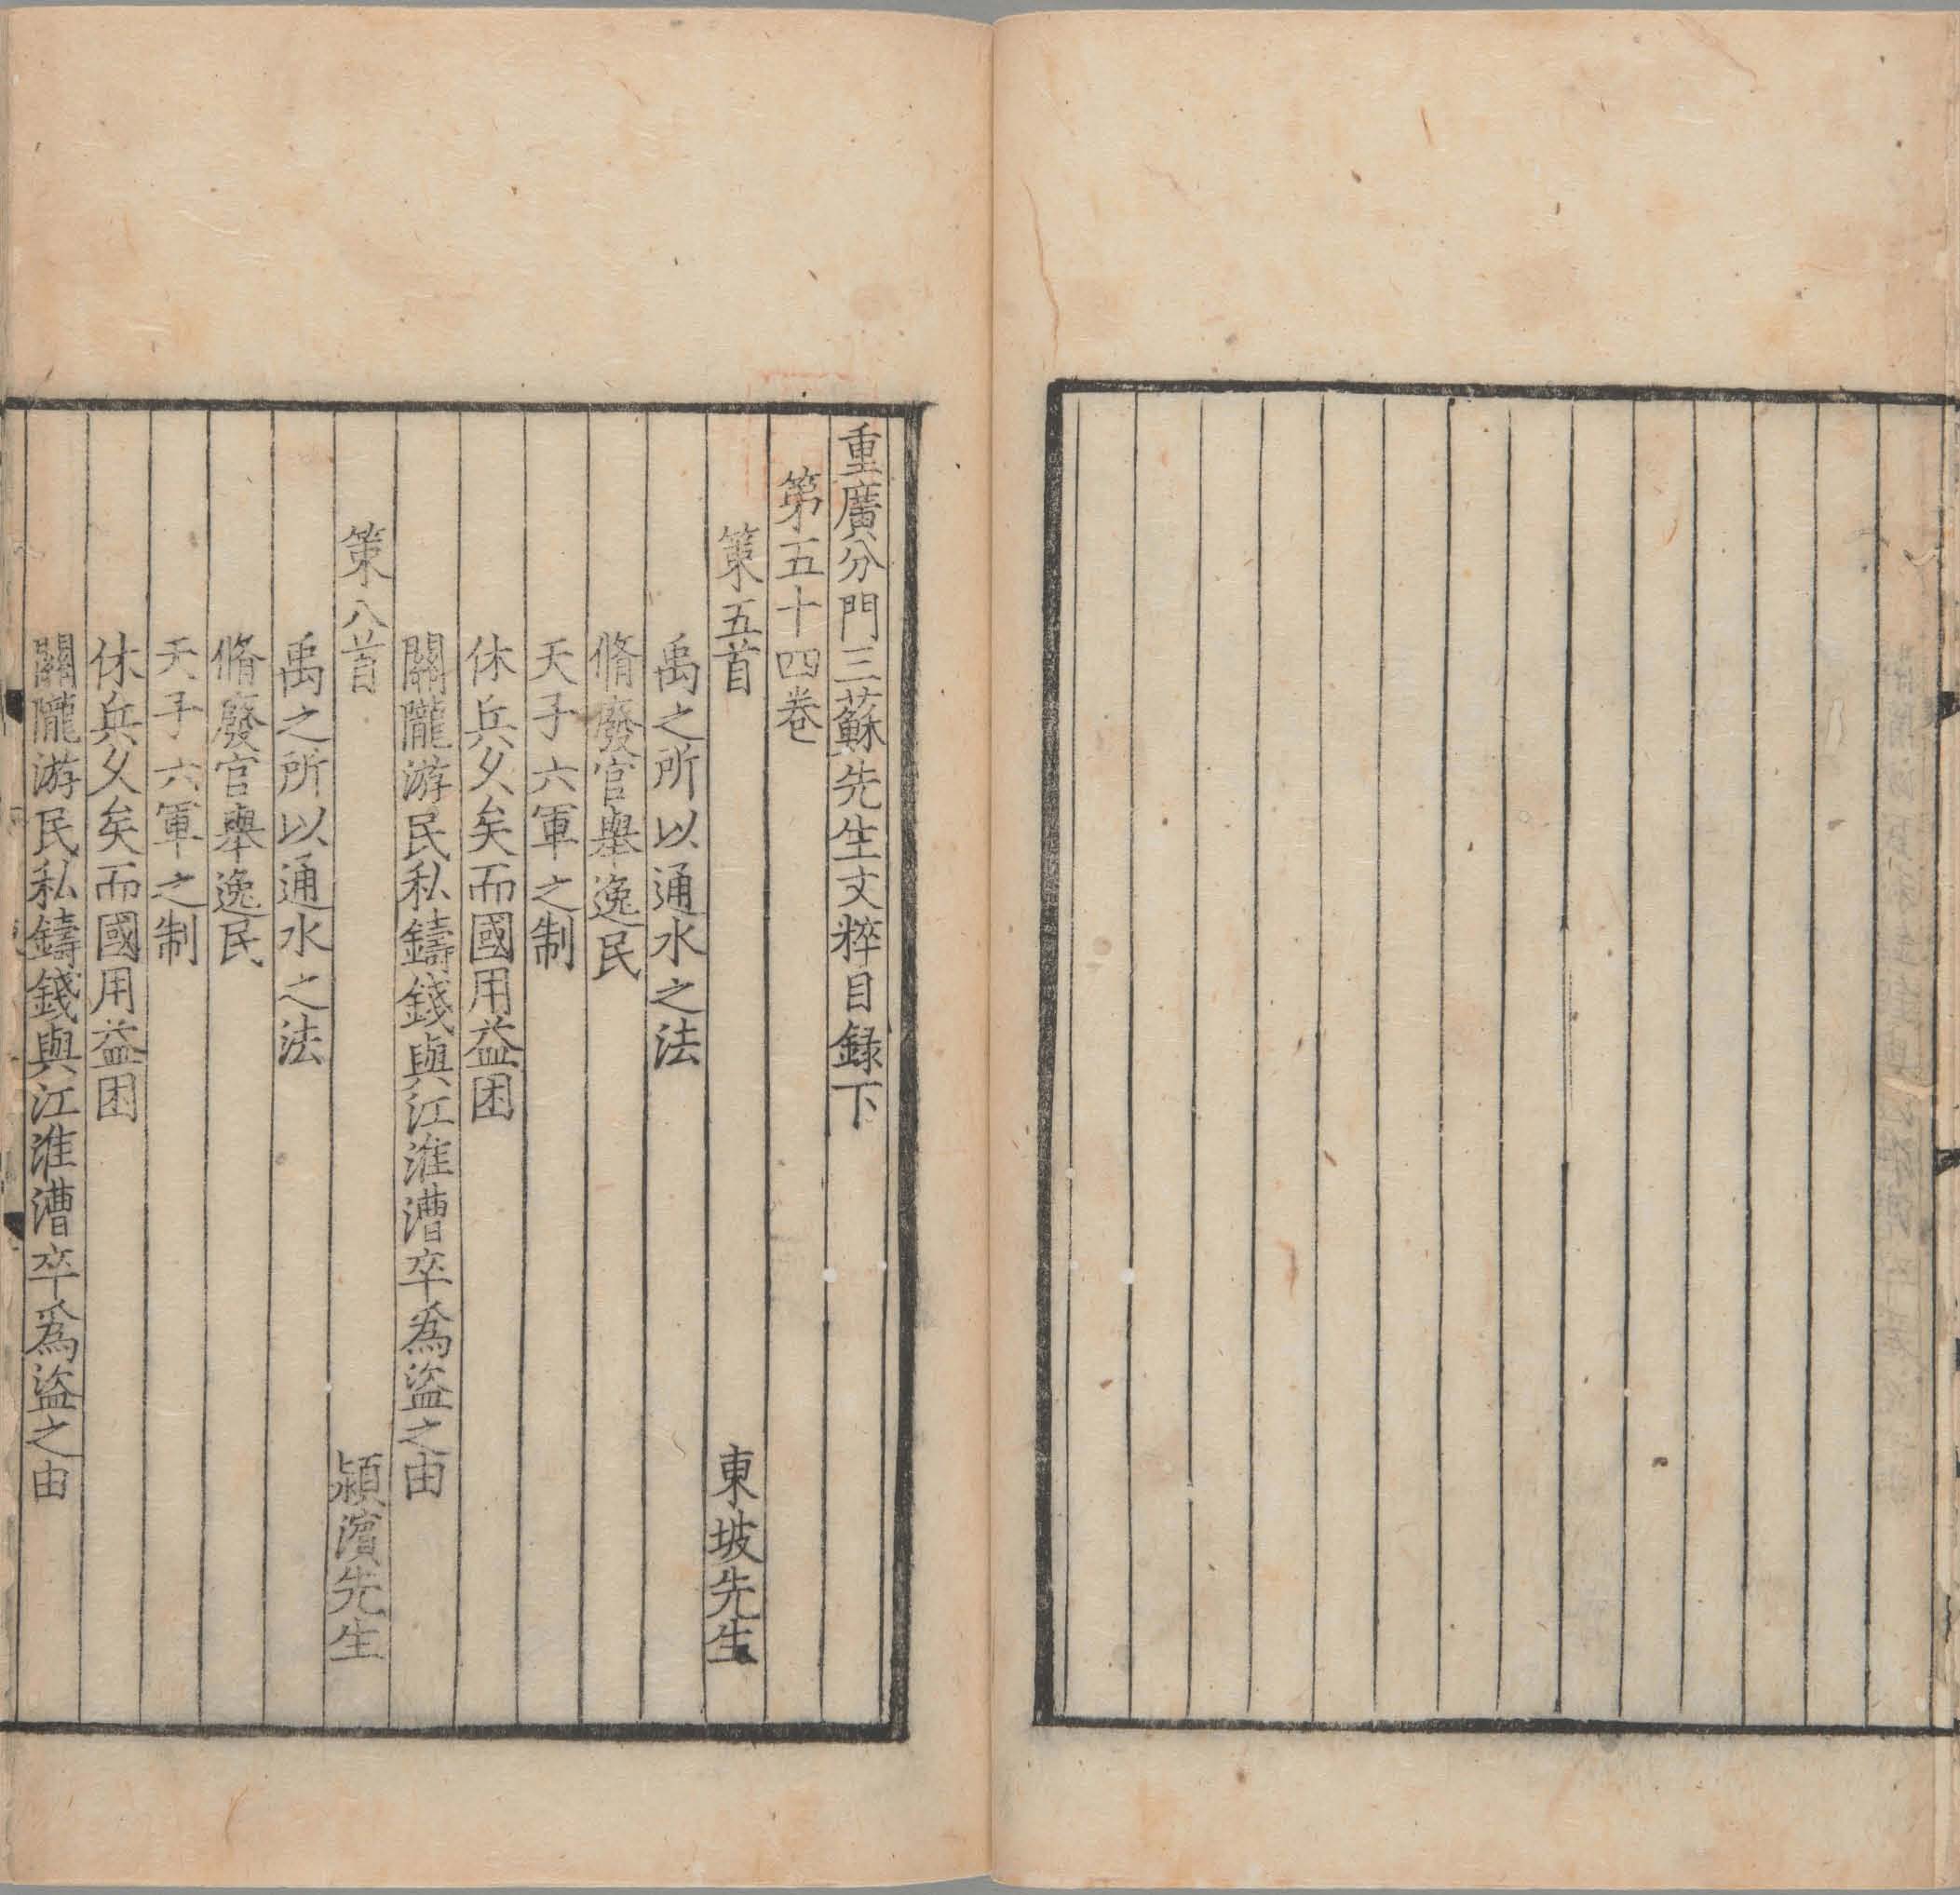 重廣分門三蘇先生文粹目録下
第五十四卷
策五首　東坡先生
禹之所以通水之法
脩廢官舉逸民
天子六軍之制
休兵久矣而國用益困
關隴游民私鑄錢與江淮漕卒爲盜之由
策八首　潁濱先生
禹之所以通水之法
脩廢官舉逸民
天子六軍之制
休兵久矣而國用益困
關隴游民私鑄錢與江淮漕卒爲盜之由